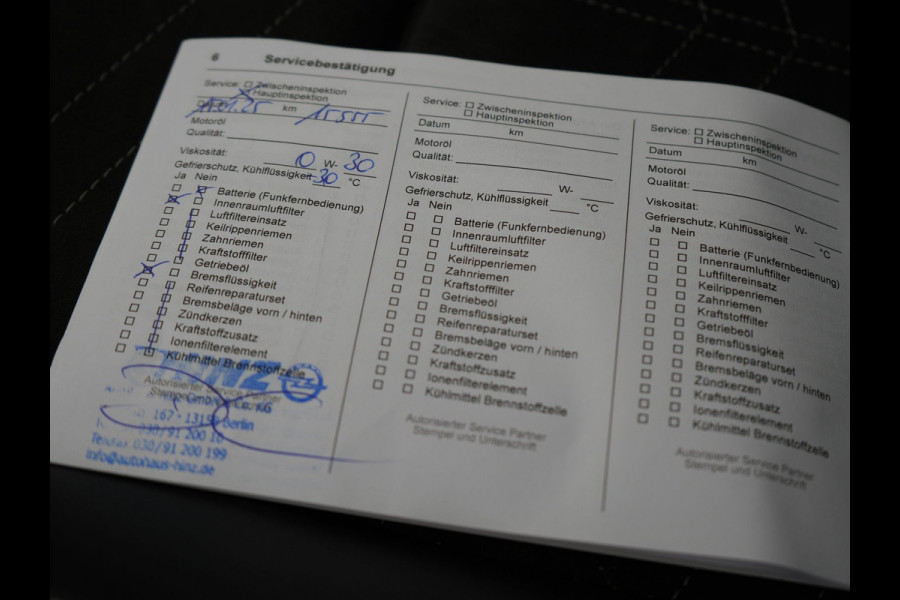 6 Servicebestätigung
Service: Zwischeninspektion
Hauptinspektion
km 15 555
Motoröl
Qualität:
Viskosität: 0 W- 30
Gefrierschutz, Kühlflüssigkeit -30 °C
Ja Nein
Batterie (Funkfernbedienung)
Innenraumluftfilter
Luftfiltereinsatz
Keilrippenriemen
Zahnriemen
Kraftstofffilter
Getriebeöl
Bremsflüssigkeit
Reifenreparaturset
Bremsbeläge vorn / hinten
Zündkerzen
Kraftstoffzusatz
Ionenfilterelement
Kühlmittel Brennstoffzelle
HINZ
Autorisierter Service Partner
GmbH & Co. KG
167 · 1315 Berlin
030/91 200 10
Telefax 030/91 200 199
info@autohaus-hinz.de
Service: Zwischeninspektion
Hauptinspektion
Datum km
Motoröl
Qualität:
Viskosität: W-
Gefrierschutz, Kühlflüssigkeit °C
Ja Nein
Batterie (Funkfernbedienung)
Innenraumluftfilter
Luftfiltereinsatz
Keilrippenriemen
Zahnriemen
Kraftstofffilter
Getriebeöl
Bremsflüssigkeit
Reifenreparaturset
Bremsbeläge vorn / hinten
Zündkerzen
Kraftstoffzusatz
Ionenfilterelement
Kühlmittel Brennstoffzelle
Autorisierter Service Partner
Stempel und Unterschrift
Service: Zwischeninspektion
Hauptinspektion
Datum km
Motoröl
Qualität:
Viskosität: W-
Gefrierschutz, Kühlflüssigkeit °C
Ja Nein
Batterie (Funkfernbedienung)
Innenraumluftfilter
Luftfiltereinsatz
Keilrippenriemen
Zahnriemen
Kraftstofffilter
Getriebeöl
Bremsflüssigkeit
Reifenreparaturset
Bremsbeläge vorn / hinten
Zündkerzen
Kraftstoffzusatz
Ionenfilterelement
Kühlmittel Brennstoffzelle
Autorisierter Service Partner
Stempel und Unterschrift